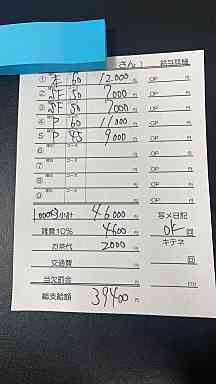 さん 給与明細
① 本 60 12000円 OP 円
② JF 50 7000円 OP 円
③ JF 50 7000円 OP 円
④ P 60 11000円 OP 円
⑤ P 85 9000円 OP 円
⑥ 円 OP 円
⑦ 円 OP 円
⑧ 円 OP 円
⑨ 円 OP 円
小計 46000円 写メ日記
雑費10% 4600円 OK 回
お茶代 2000円 キテネ
交通費 円 回
当欠罰金 円
総支給額 39400円